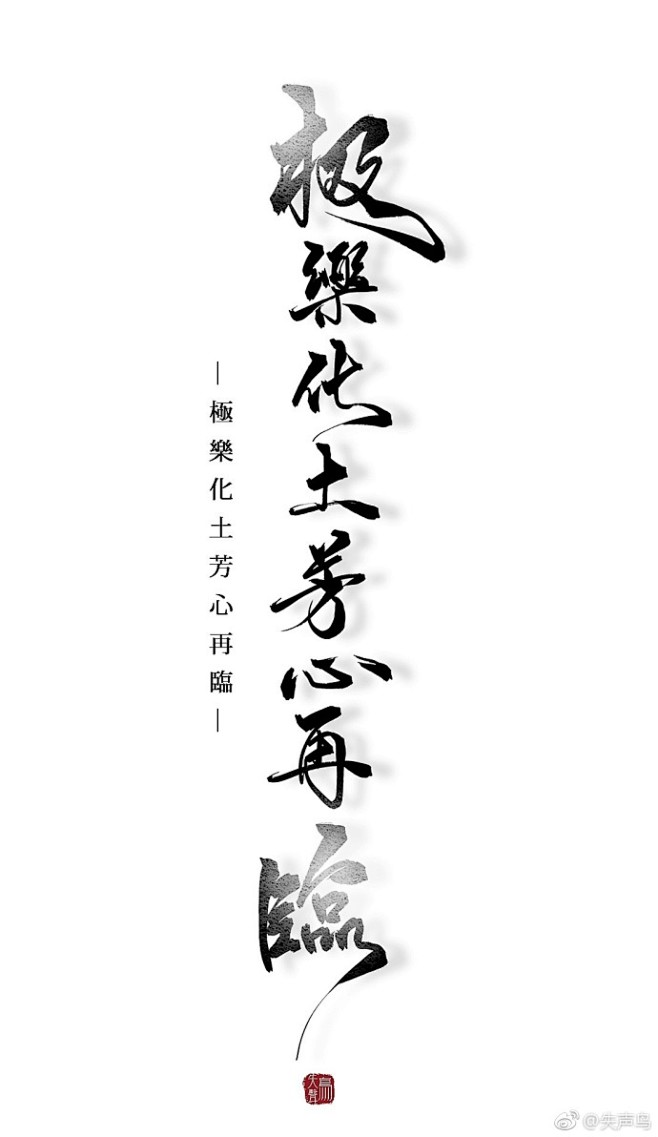 极樂化土芳心再臨
— 極樂化土芳心再臨 —
失聲鳥
@失声鸟